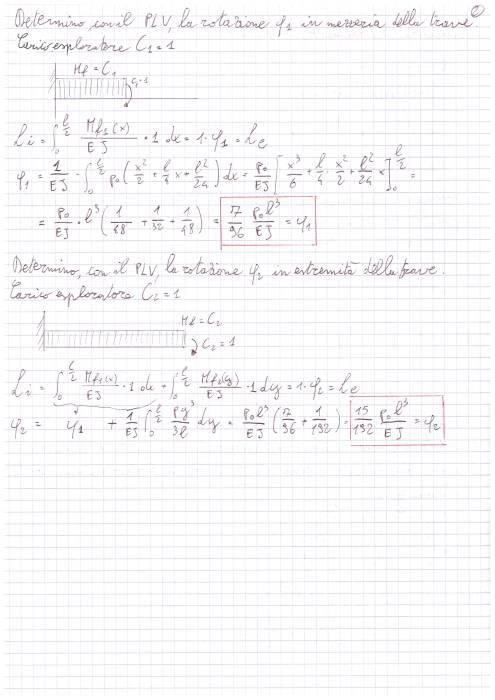 Determino, con il PLV, la rotazione φ₁ in mezzeria della trave. 2
Carico esploratore C₁ = 1
Mf = C₁
C₁ = 1
Li = ∫₀^(l/2) Mf₁(x)/EJ · 1 dx = 1 · φ₁ = Le
φ₁ = 1/EJ · ∫₀^(l/2) p₀(x²/2 + l/4 x + l²/24) dx = p₀/EJ [x³/6 + l/4 · x²/2 + l²/24 x]₀^(l/2) =
= p₀/EJ · l³ (1/48 + 1/32 + 1/48) = 7/96 p₀l³/EJ = φ₁
Determino, con il PLV, la rotazione φ₂ in estremità della trave.
Carico esploratore C₂ = 1
Mf = C₂
C₂ = 1
Li = ∫₀^(l/2) Mf₁(x)/EJ · 1 dx + ∫₀^(l/2) Mf₂(y)/EJ · 1 dy = 1 · φ₂ = Le
φ₂ = φ₁ + 1/EJ ∫₀^(l/2) py³/3l dy = p₀l³/EJ (7/96 + 1/192) = 15/192 p₀l³/EJ = φ₂